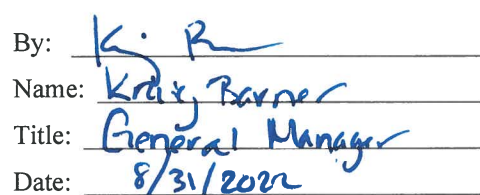 By:
Name: Kraig Barner
Title: General Manager
Date: 8/31/2022